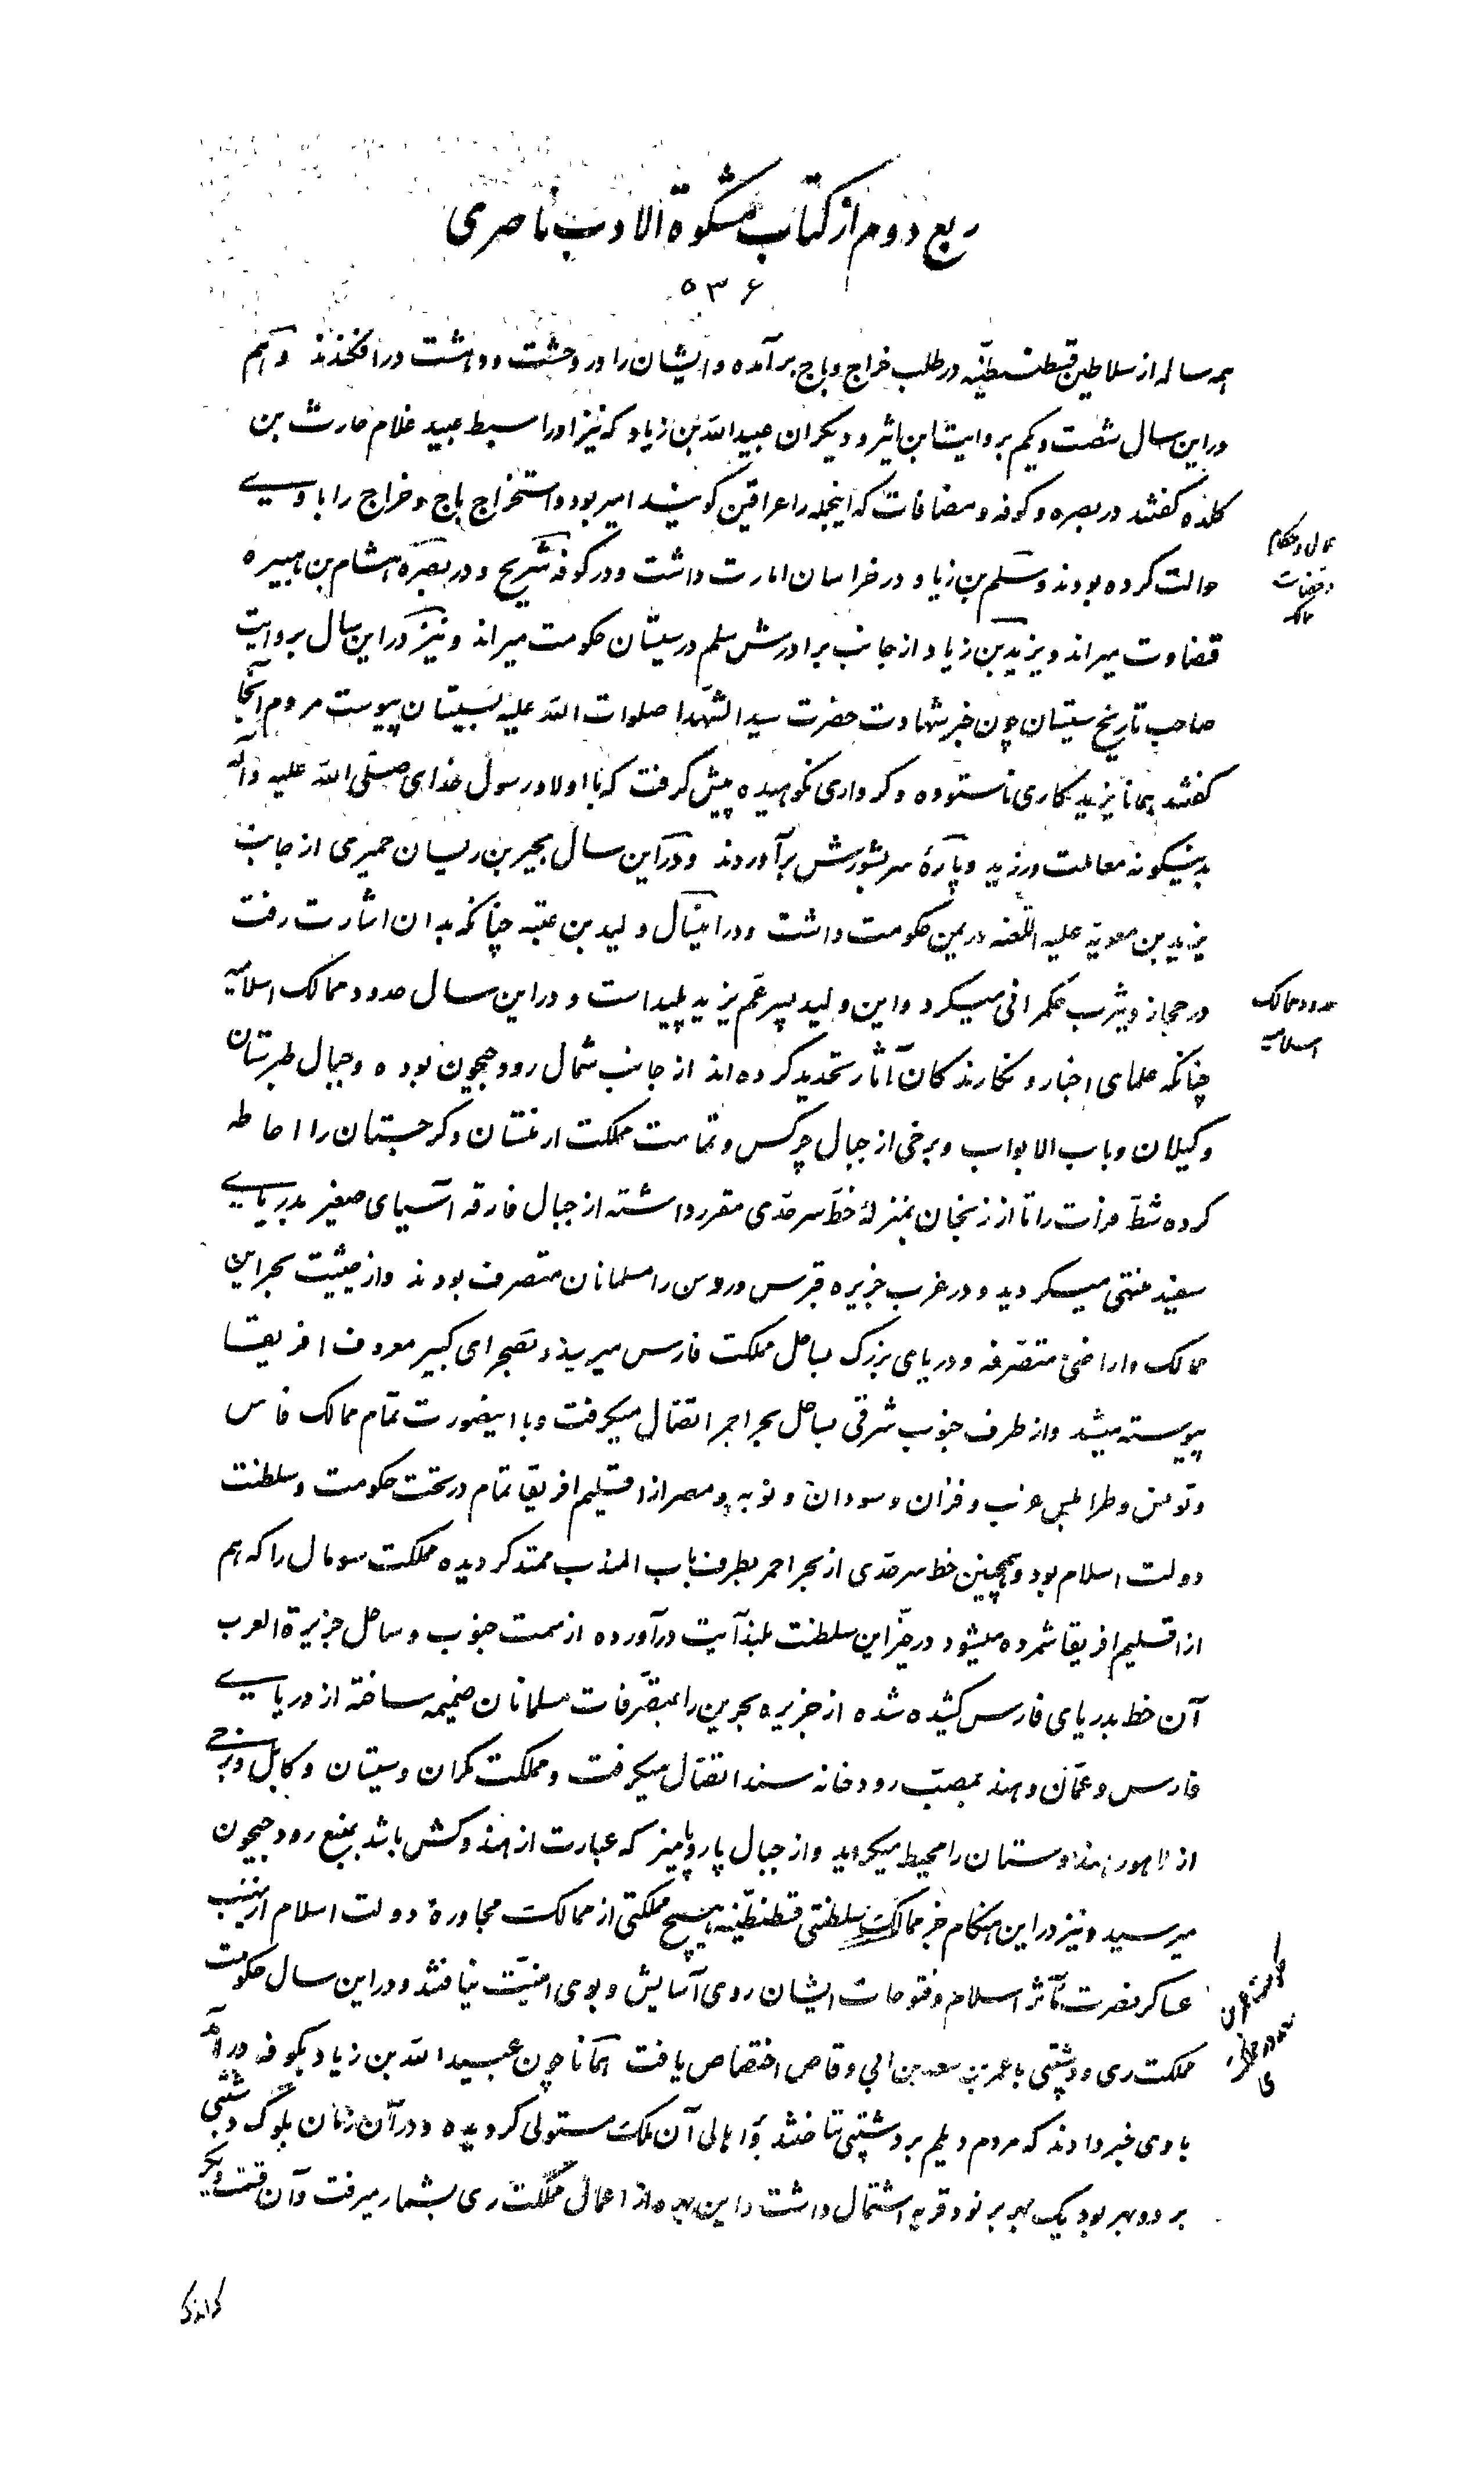 ربع دوم از کتاب مشکوة الادب ناصری
۵۳۶
همه ساله از سلاطین قسطنطنیّه در طلب خراج و باج برآمده و ایشان را در وحشت و دهشت درافکندند و هم
در این سال شصت و یکم بروایت ابن اثیر و دیگران عبیدالله بن زیاد که نیز او را سبط عبید غلام حارث بن
کلده گفتند در بصره و کوفه و مضافات که اینجمله را عراقین گویند امیر بود و استخراج باج و خراج را با وی
حوالت کرده بودند و سلم بن زیاد در خراسان امارت داشت و در کوفه شریح و در بصره هشام بن هبیره
قضاوت میراند و یزید بن زیاد از جانب برادرش سلم در سیستان حکومت میراند و نیز در این سال بروایت
صاحب تاریخ سیستان چون خبر شهادت حضرت سیدالشهدا صلوات الله علیه بسیستان پیوست مردم آنجا
گفتند همانا یزید کاری ناستوده و کرداری نکوهیده پیش گرفت که با اولاد رسول خدای صلی الله علیه وآله
بدینگونه معاملت ورزید و پارهٔ سر بشورش برآوردند و در این سال بحیر بن ریسان حمیری از جانب
یزید بن معویة علیه اللعنه در یمن حکومت داشت و در اینسال ولید بن عتبه چنانکه بدان اشارت رفت
در حجاز و یثرب حکمرانی میکرد و این ولید پسر عمّ یزید پلید است و در این سال حدود ممالک اسلامیه
چنانکه علمای اخبار و نگارندگان آثار تحدید کرده‌اند از جانب شمال رود جیحون بوده و جبال طبرستان
و گیلان و باب الابواب و برخی از جبال چرکس و تمامت مملکت ارمنستان و گرجستان را احاطه
کرده شطّ فرات را تا ارزنجان بمنزلهٔ خطّ سرحدّی مقرر داشته از جبال فارقه آسیای صغیر بدریای
سفید منتهی میگردید و در غرب جزیره قبرس و رودس را مسلمانان متصرف بودند و از حیثیت بحر این
ممالک و اراضی متصرّفه و دریای بزرگ بساحل مملکت فارس میرسید و بصحرای کبیر معروف افریقا
پیوسته میشد و از طرف جنوب شرقی بساحل بحر احمر اتصال میگرفت و با اینصورت تمام ممالک فاس
و تونس و طرابلس غرب و فزان و سودان و نوبه و مصر از اقلیم افریقا تمام در تحت حکومت و سلطنت
دولت اسلام بود و همچنین خط سرحدّی از بحر احمر بطرف باب المندب ممتد گردیده مملکت سومال را که هم
از اقلیم افریقا شمرده میشود در حیّز این سلطنت بلند آیت درآورده از سمت جنوب و ساحل جزیرة العرب
آن خط بدریای فارس کشیده شده از جزیره بحرین را بمتصرّفات مسلمانان ضمیمه ساخته از دریای
فارس و عمّان و هند بمصبّ رودخانه سند اتصال میگرفت و مملکت مکران و سیستان و کابل و برخی
از لاهور هندوستان را محیط میگردید و از جبال پاروپامیز که عبارت از هندوکش باشد بمنبع رود جیحون
میرسید و نیز در این هنگام جز ممالک سلطنتی قسطنطنیّه هیچ مملکتی از ممالک مجاورهٔ دولت اسلام از نهیب
عساکر نصرت مآثر اسلام و فتوحات ایشان روی آسایش و بوی امنیّت نیافتند و در این سال حکومت
مملکت ری و دشتبی با عمر بن سعد بن ابی وقاص اختصاص یافت همانا چون عبیدالله بن زیاد بکوفه درآمد
با وی خبر دادند که مردم دیلم بر دشتبی تاختند و اهالی آن ملک مستولی گردیده و در آن زمان بلوک دشتبی
بر دو بهر بود یک بهر بر نود قریه اشتمال داشت و این بهره از اعمال مملکت ری بشمار میرفت و آن قسمت دیگر
عمال و حکام
و قضات
ممالک
حدود ممالک
اسلامیه